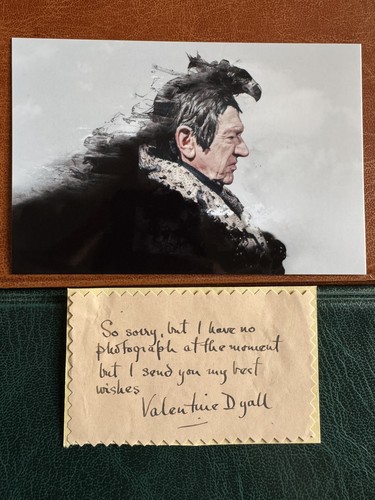 So sorry, but I have no
photograph at the moment
but I send you my best
wishes
Valentine Dyall